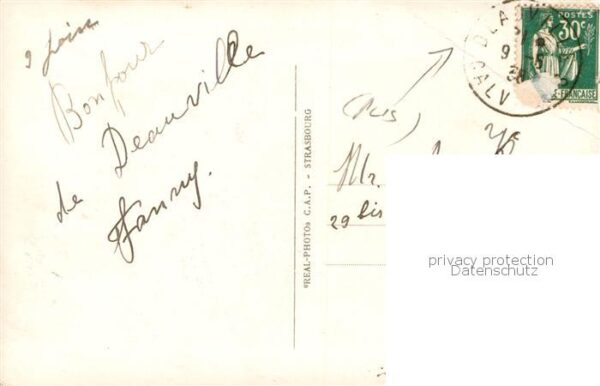 9 Juin
Bonjour
de Deauville
Fanny.
"REAL-PHOTO" C.A.P. - STRASBOURG
POSTES
30c
FRANÇAISE
DEAUVI
9
CALV
Mr.
29 bis
privacy protection
Datenschutz